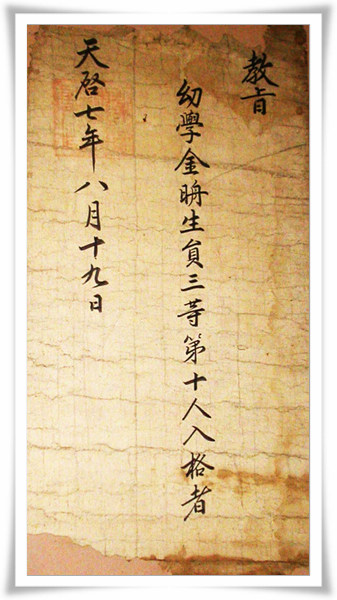 教旨
幼學金㫢生員三等第十人入格者
天啓七年八月十九日